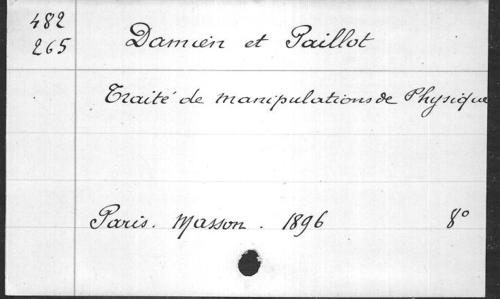 482
265
Damien et Paillot
Traité de manipulations de Physique
Paris. Masson. 1896 8°